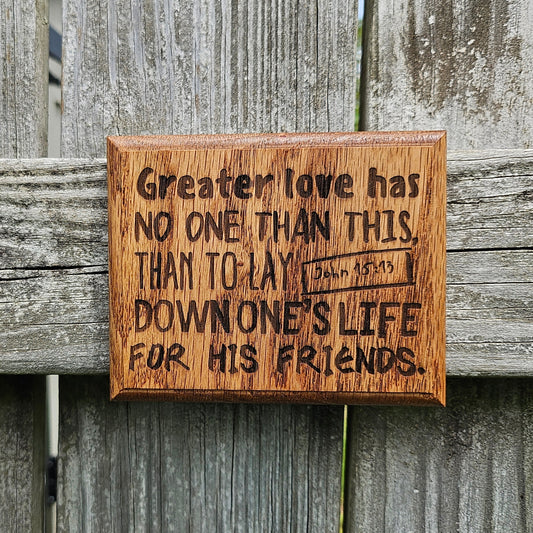 Greater love has
NO ONE THAN THIS,
THAN TO LAY John 15:13
DOWN ONE'S LIFE
FOR HIS FRIENDS.